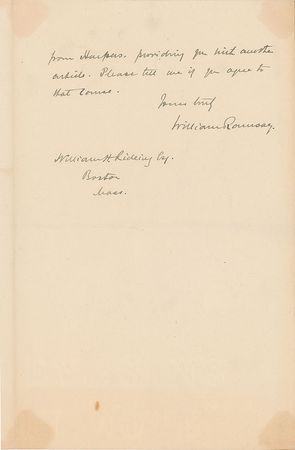 from Harpers. providing you with another
article. Please tell me if you agree to
that course.
Yours truly
William Ramsay.
William H Rideing Esq.
Boston
Mass.